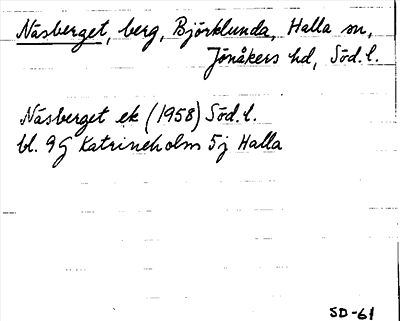 Näsberget, berg, Björklunda, Halla sn,
Jönåkers hd, Söd. l.
Näsberget ek (1958) Söd. l.
bl. 9G Katrineholm 5j Halla
SD-61